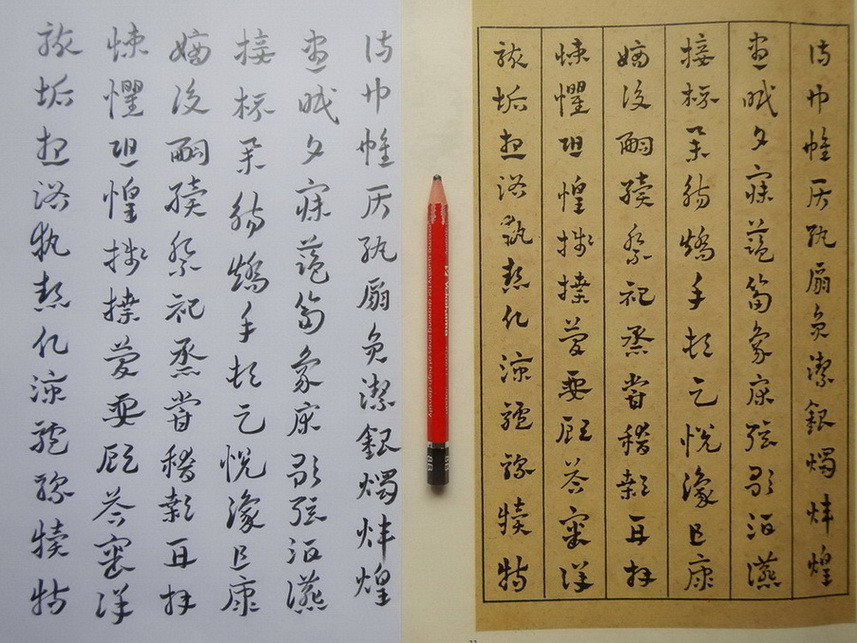 侍巾帷房紈扇圓潔銀燭煒煌
晝眠夕寐藍筍象床弦歌酒讌
接杯舉觴矯手頓足悅豫且康
嫡後嗣續祭祀蒸嘗稽顙再拜
悚懼恐惶牋牒簡要顧答審詳
骸垢想浴執熱願涼驢騾犢特
8B
侍巾帷房紈扇圓潔銀燭煒煌
晝眠夕寐藍筍象床弦歌酒讌
接杯舉觴矯手頓足悅豫且康
嫡後嗣續祭祀蒸嘗稽顙再拜
悚懼恐惶牋牒簡要顧答審詳
骸垢想浴執熱願涼驢騾犢特